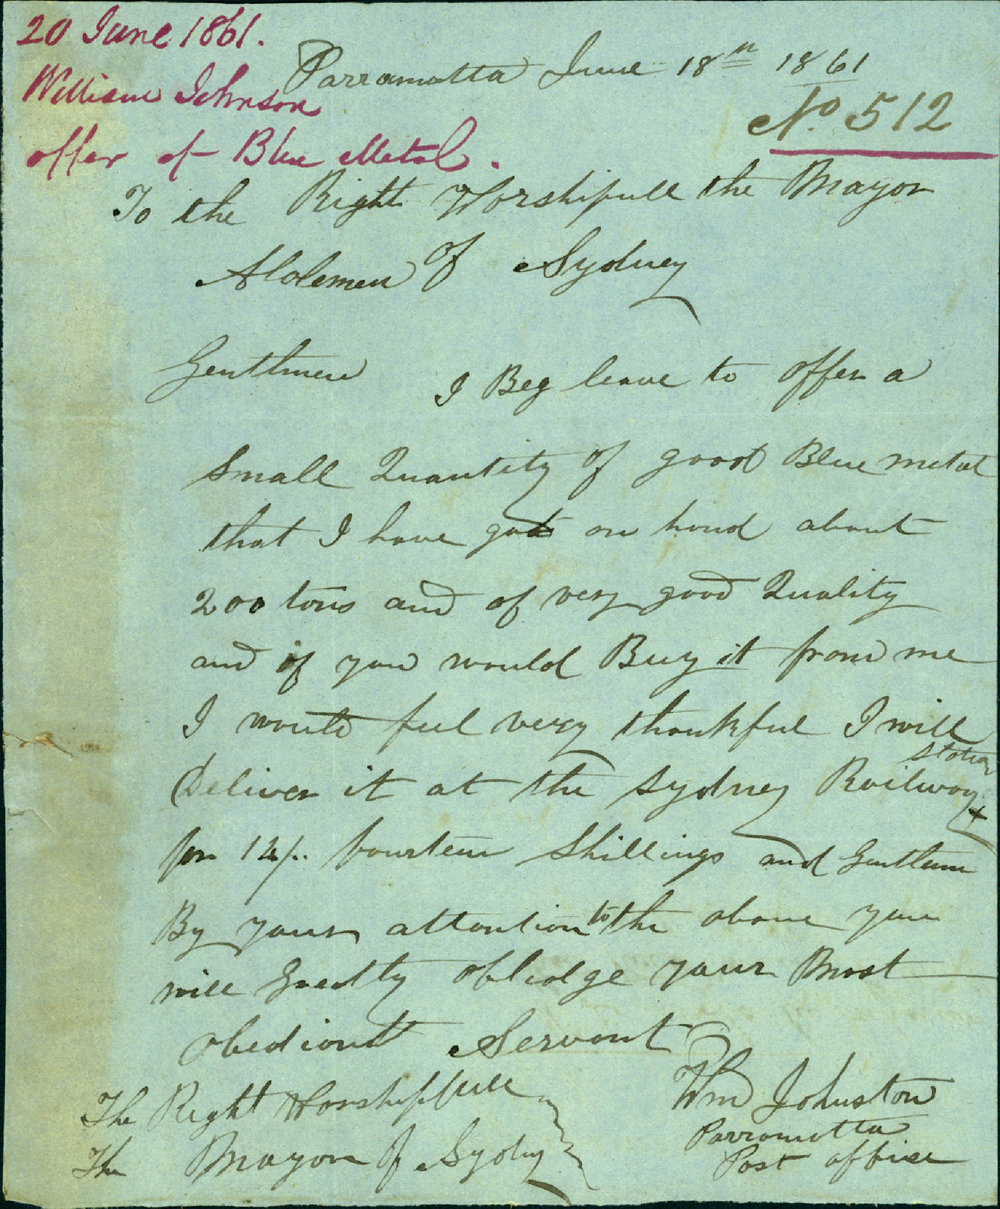 20 June 1861.
William Johnson
offer of Blue Metal.
Parramatta June 18th 1861
No. 512
To the Right Worshipfull the Mayor
Aldemen of Sydney
Gentlmen I Beg leave to offer a
Small Quantity of good Blue metal
that I have got on hand about
200 tons and of very good Quality
and if you would Buy it from me
I would feel very thankful I will
Deliver it at the Sydney Railway station
for 14/. fourteen Shillings and Gentlem
By your attention to the above you
will Greatly obledge your Most
obediant Servant
Wm Johnston
Parramatta
Post office
The Right Worshipfull
The Mayor of Sydny